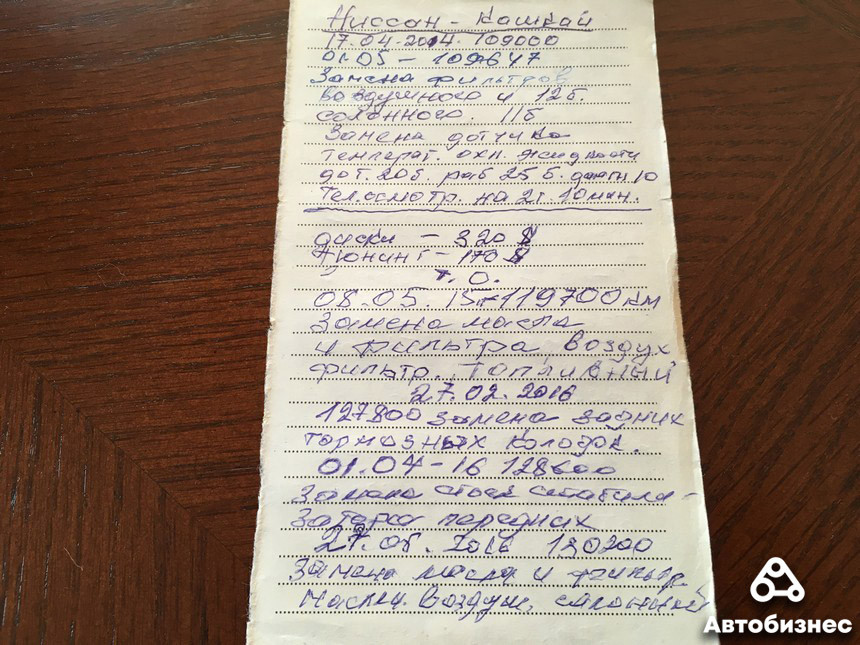 Ниссан - Кашкай
17.04.2014. 109000
01.05 - 109647
Замена фильтров
воздушного и 12б.
солонного. 11б
Замена дотчика
температ. охл. жидкости
дот. 20б. раб 25б.
Тех.осмотр. на 2г. 10 мен.
диски - 320 $
тюнинг - 170 $
т.О.
08.05.15 - 119700 км
Замена масла
и фильтра, воздух
фильтр. топливный
27.02.2016
127800 замена задних
тормозных колодок.
01.04-16 128600
Замена стоек стабили-
затора передних
27.08.2016 130200
Замена масла и фильтр
Маслян. Воздуш, салонный
Автобизнес